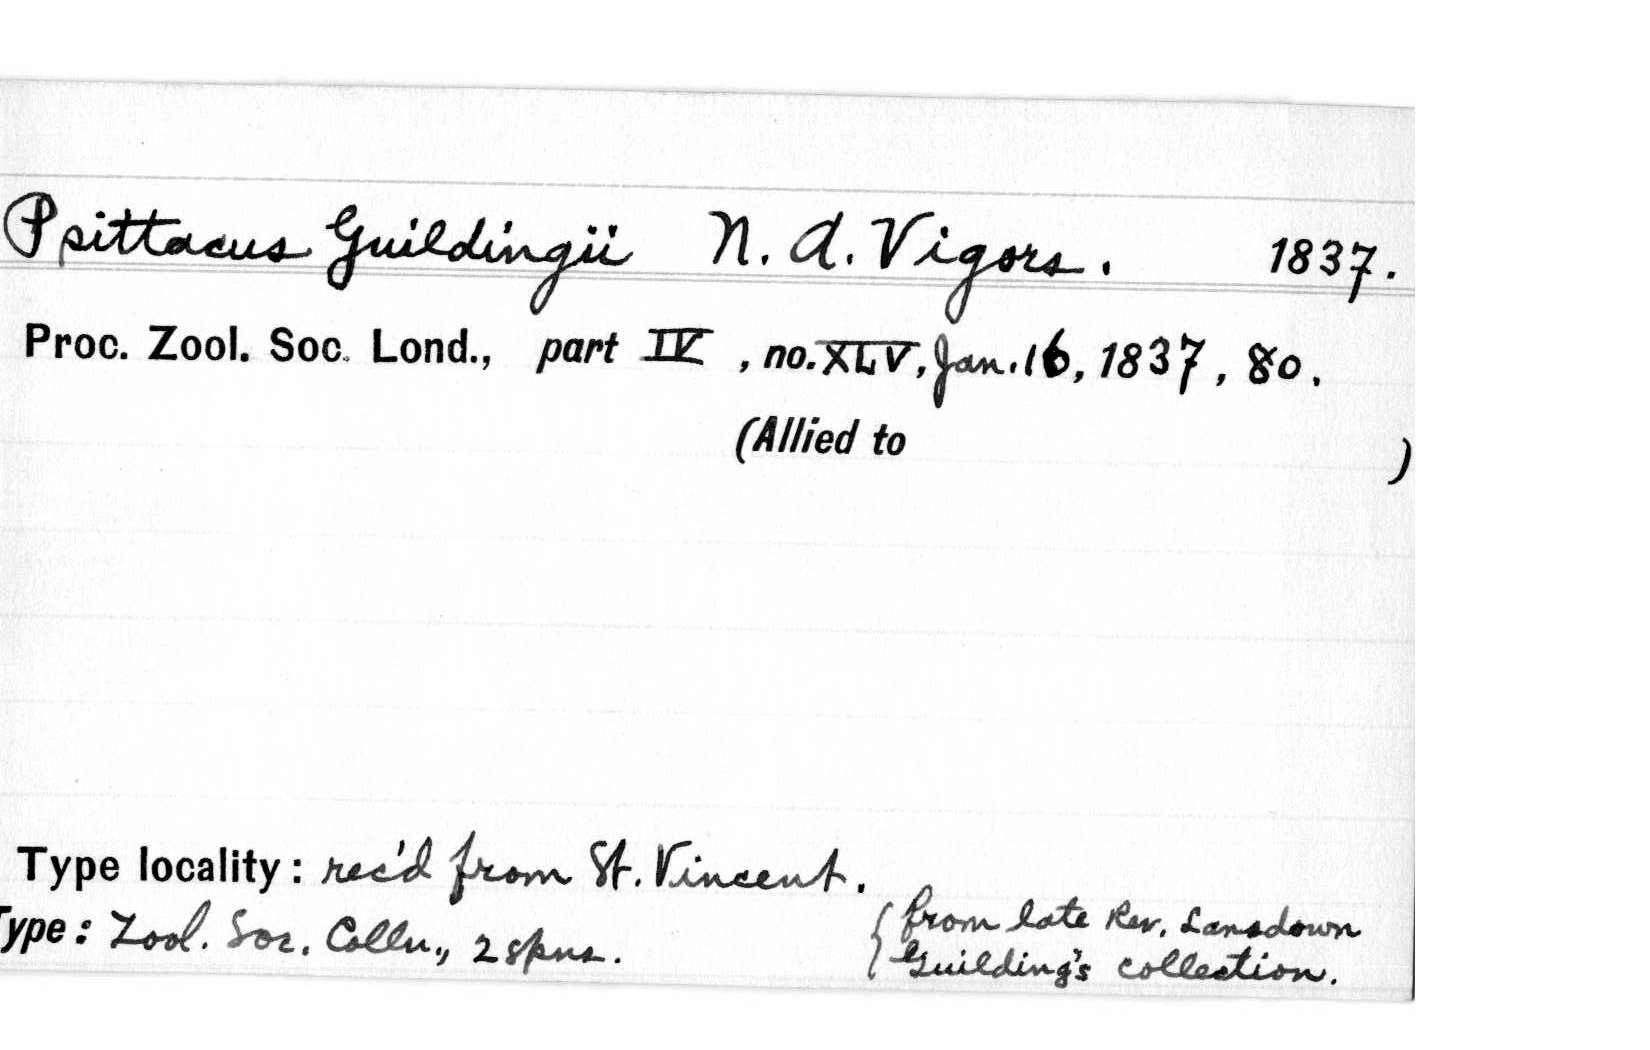 Psittacus Guildingii N. A. Vigors. 1837.
Proc. Zool. Soc. Lond., part IV, no. XLV, Jan. 16, 1837, 80.
(Allied to )
Type locality: rec'd from St. Vincent.
Type: Zool. Soc. Colln., 2 spns. { from late Rev. Lansdown
Guilding's collection.